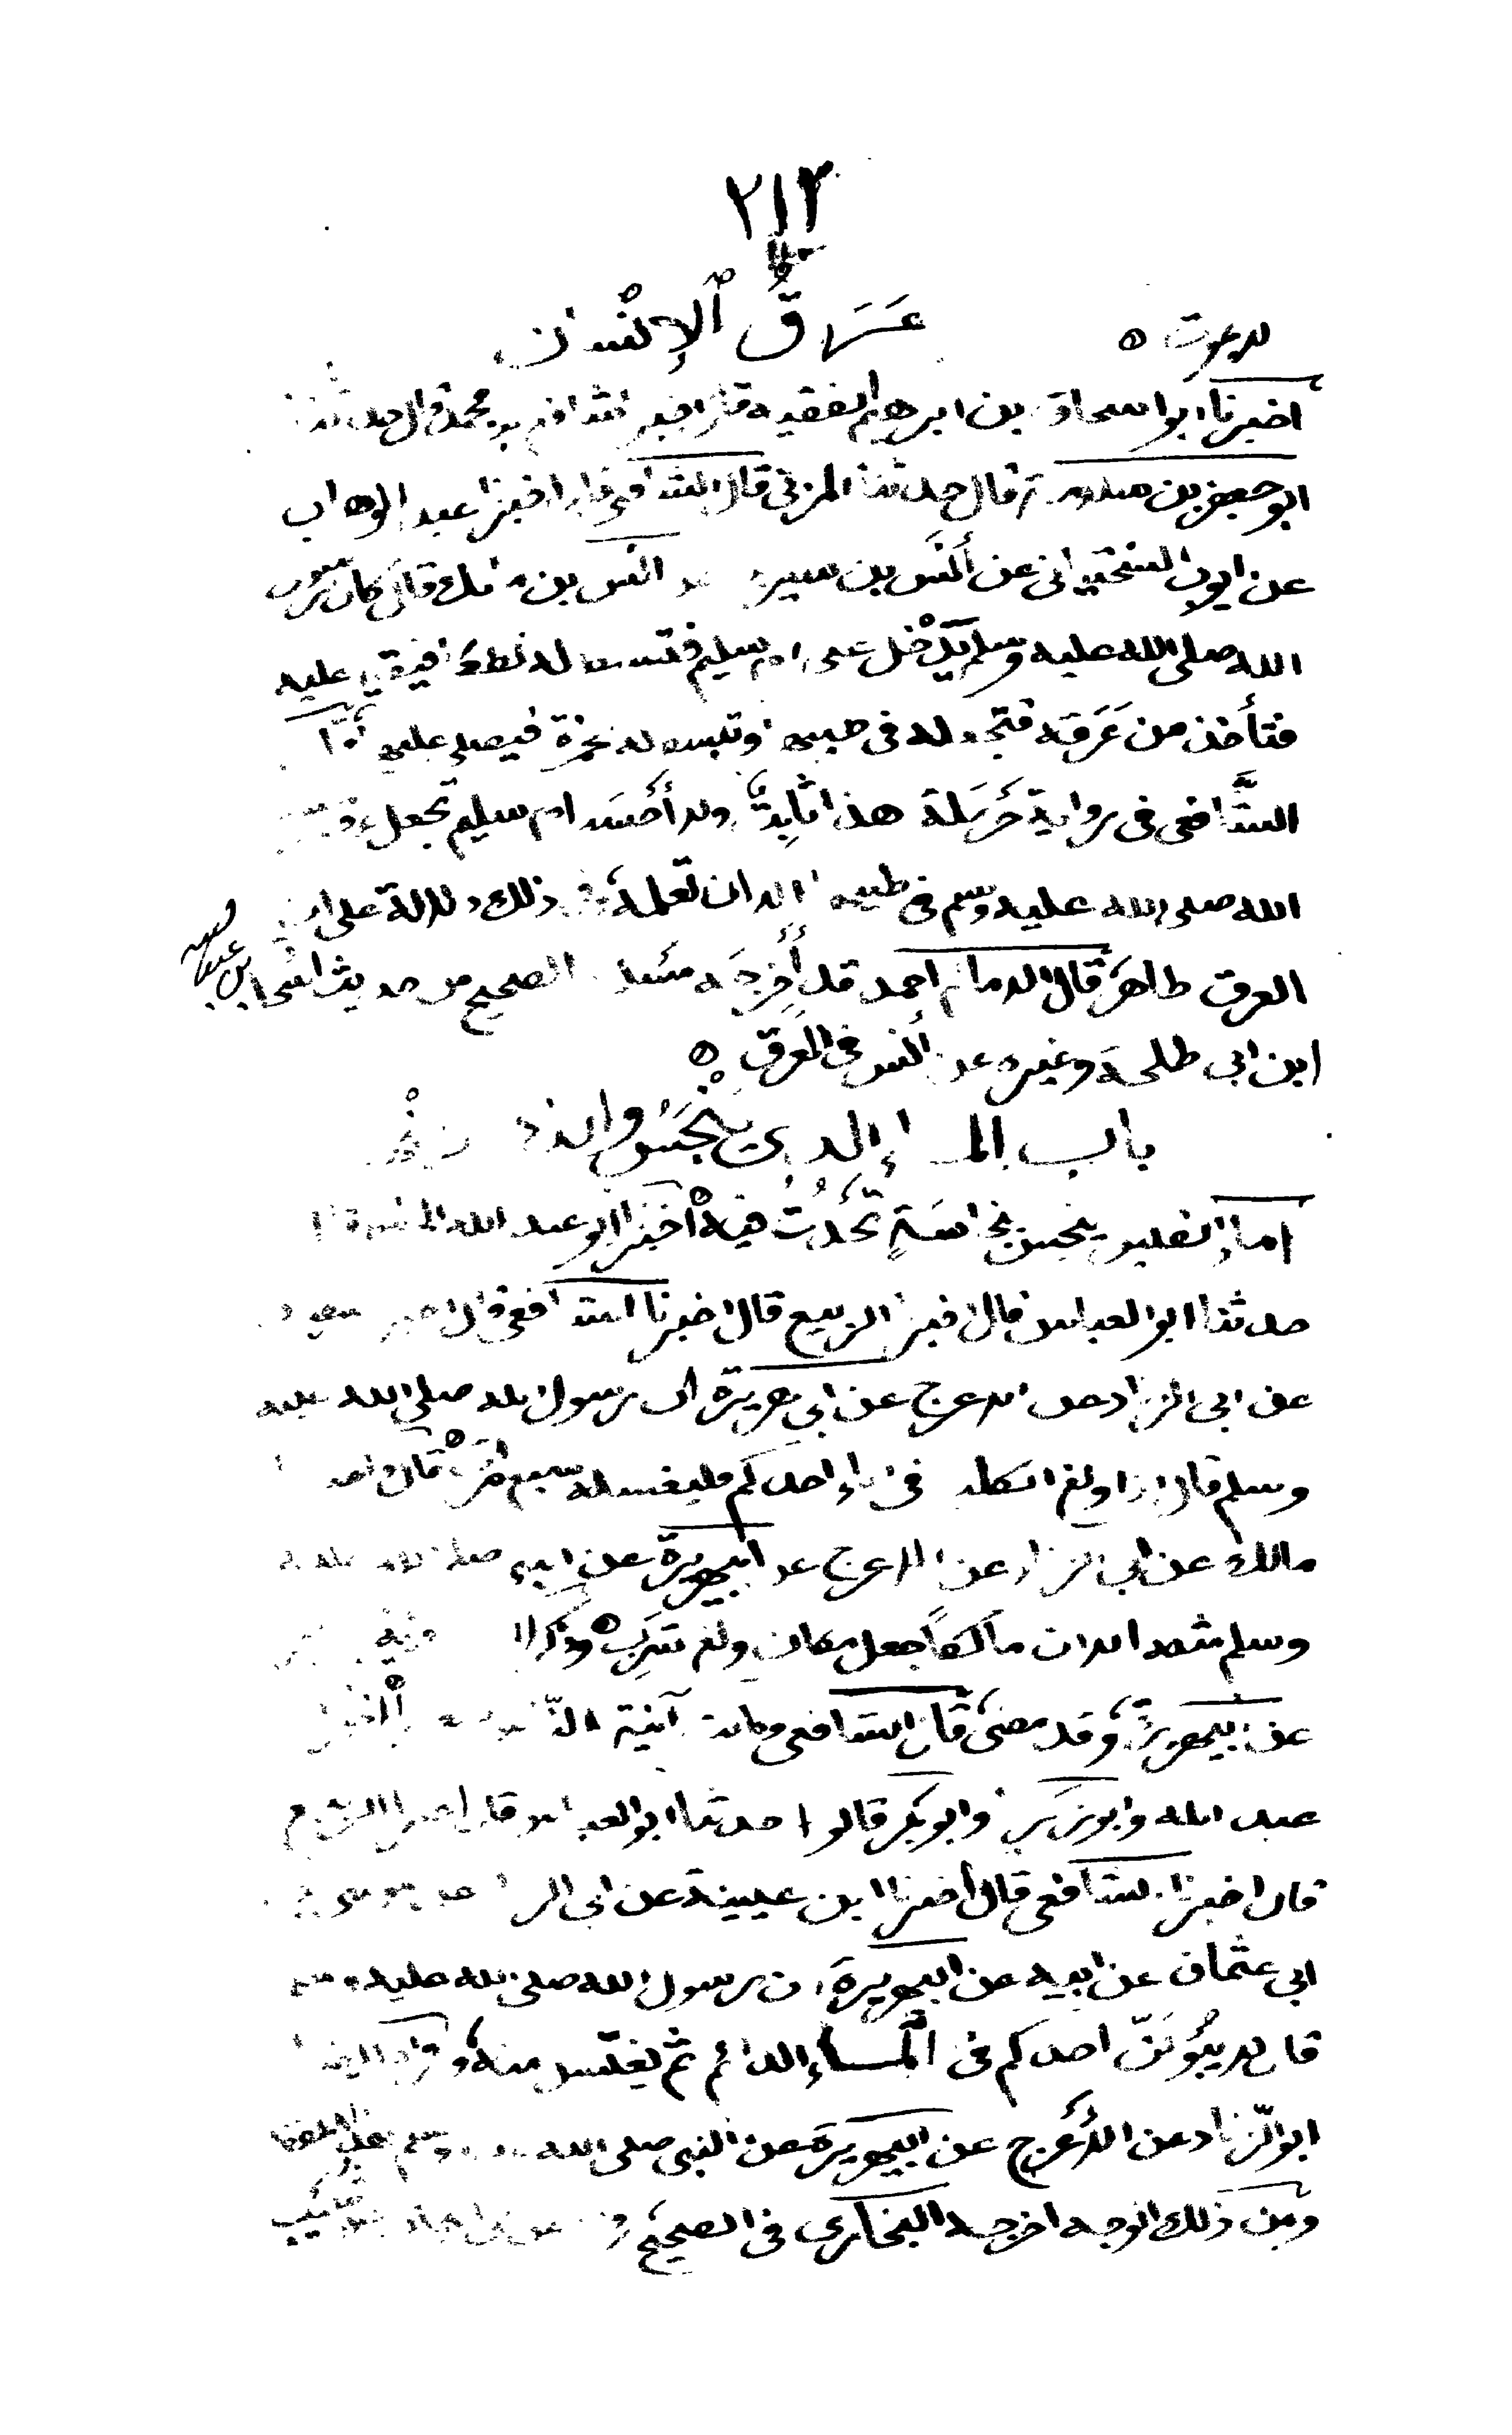 ٢١٣
لا يموت ه عَرَقُ الإنْسَان
اخبرنا ابو اسحاق بن ابرهيم الفقيه قال اخبرنا شافع بن محمد قال حدثنا
ابو جعفر بن سلامة قال حدثنا المزني قال الشافعي قال اخبرنا عبد الوهاب
عن ايوب السختياني عن أنَس بن سيرين عن انس بن مالك قال كان رسول
الله صلى الله عليه وسلم يَدْخل على ام سليم فتبسط له نطعا فيقيل عليه
فتأخذ من عَرَقه فتجعله في طيبها وتبسط له خمرة فيصلي عليها قال
الشَّافعي في رواية حَرملة هذا ثابِتٌ ولا أحْسَب ام سليم تجعل عرق رسول
الله صلى الله عليه وسلم في طيبها الا ان تعلمه وفي ذلك دلالة على ان
العرق طاهر قال الامام احمد قد أخرجَه مسلم في الصحيح من حديث اسحاق بن عبد الله
ابن ابي طلحة وغيره عن أنس في العرق ه
باب الماء الذي ينْجَس والذي لا ينْجس
الماء القليل ينجس بنجاسَةٍ تَحْدُث فيه ه أخبرنا ابو عبد الله الحافظ قال
حدثنا ابو العباس قال اخبرنا الربيع قال اخبرنا الشافعي قال اخبرنا سفيان
عن ابي الزناد عن الاعرج عن ابي هريرة ان رسول الله صلى الله عليه
وسلم قال اذا ولغ الكلب في اناء احدكم فليغسله سبع مَرَّات ه قال واخبرنا
مالك عن ابي الزناد عن الاعرج عن ابي هريرة عن النبي صلى الله عليه
وسلم مثله الا ان مالكاً جعل مكان ولغ شَرِبَ ه وذكر
عن ابي هريرة وقد مضى قال الشافعي وكانت آنية النَّاس أخبرنا ابو
عبد الله وابو زكريا وابو بكر قالوا حدثنا ابو العباس قال اخبرنا الربيع
قال اخبرنا الشافعي قال أخبرنا ابن عيينة عن ابي الزناد عن موسى بن
ابي عثمان عن ابيه عن ابي هريرة ان رسول الله صلى الله عليه وسلم
قال لا يبُولَنّ احدكم في الْمـاء الدائم ثم يغتسل منه ورواه ايضا
ابو الزناد عن الأعرج عن ابي هريرة عن النبي صلى الله عليه وسلم
ومن ذلك الوجه اخرجه البخاري في الصحيح من حديث شُعَيْب